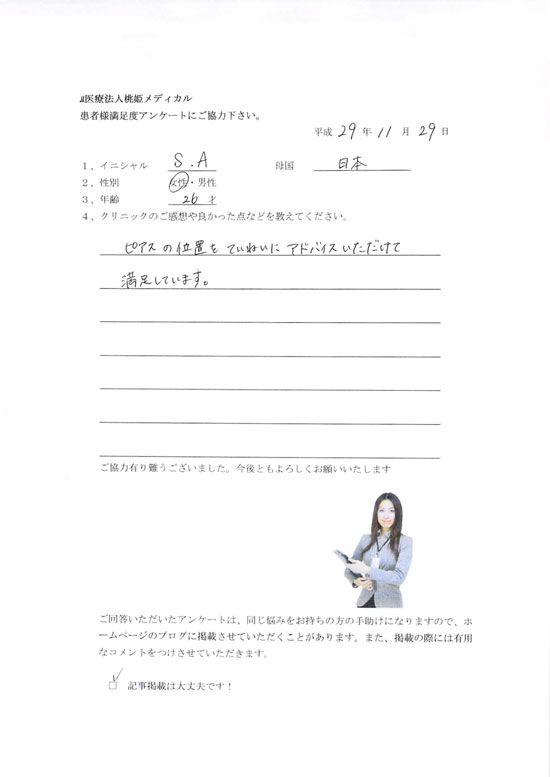 医療法人桃姫メディカル
患者様満足度アンケートにご協力下さい。
平成 29 年 11 月 29 日
1、イニシャル S.A 母国 日本
2、性別 女性・男性
3、年齢 26 才
4、クリニックのご感想や良かった点などを教えてください。
ピアスの位置を ていねいに アドバイスいただけて
満足しています。
ご協力有り難うございました。今後ともよろしくお願いいたします
ご回答いただいたアンケートは、同じ悩みをお持ちの方の手助けになりますので、ホ
ームページのブログに掲載させていただくことがあります。また、掲載の際には有用
なコメントをつけさせていただきます。
☑ 記事掲載は大丈夫です！